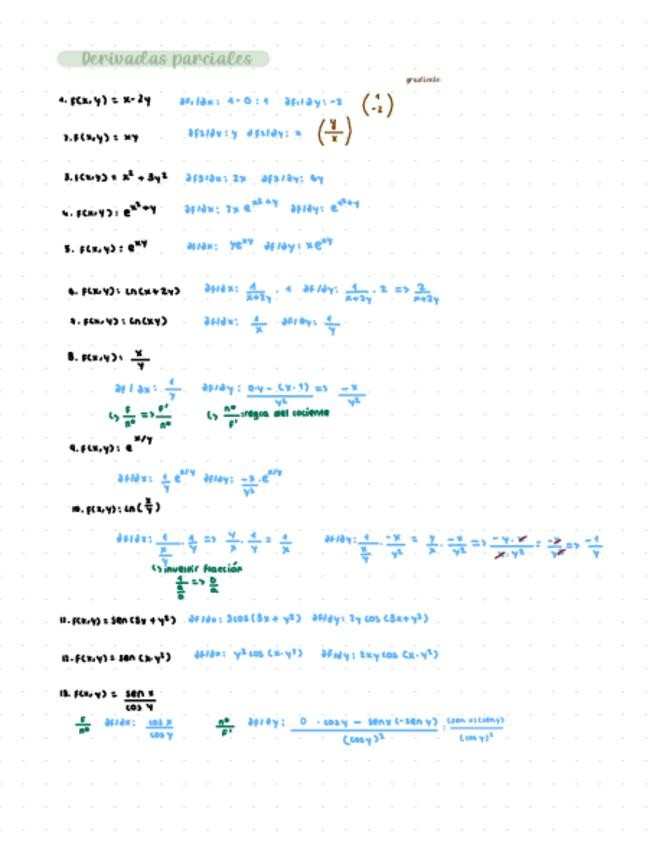 Derivadas parciales
gradiente
1. F(x,y) = x-2y ∂F1/∂x: 1-0:1 ∂F1/∂y:-2 (1 -2)
2. F(x,y) = xy ∂F2/∂x: y ∂F2/∂y: x (y/x)
3. F(x,y) = x² + 3y² ∂F3/∂x: 2x ∂F3/∂y: 6y
4. F(x,y): e^x²+y ∂F/∂x: 2x e^x²+y ∂F/∂y: e^x²+y
5. F(x,y): e^xy ∂F/∂x: ye^xy ∂F/∂y: xe^xy
6. F(x,y): Ln(x+2y) ∂F/∂x: 1/x+2y · 1 ∂F/∂y: 1/x+2y · 2 => 2/x+2y
7. F(x,y): Ln(xy) ∂F/∂x: 1/x ∂F/∂y: 1/y
8. F(x,y): x/y
∂F/∂x: 1/y ∂F/∂y: 0·y - (x·1)/y² => -x/y²
↳ F/nº => F'/nº ↳ nº/F' : regla del cociente
9. F(x,y): e^x/y
∂F/∂x: 1/y e^x/y ∂F/∂y: -x/y² · e^x/y
10. F(x,y): Ln(x/y)
∂F/∂x: 1/(x/y) · 1/y => y/x · 1/y = 1/x ∂F/∂y: 1/(x/y) · -x/y² = y/x · -x/y² => -y·x/x·y² = -y/y² => -1/y
↳ invertir fracción
1/(a/b) => b/a
11. F(x,y) = sen(3x + y²) ∂F/∂x: 3cos(3x + y²) ∂F/∂y: 2y cos(3x+y²)
12. F(x,y) = sen(x·y²) ∂F/∂x: y² cos(x·y²) ∂F/∂y: 2xy cos(x·y²)
13. F(x,y) = sen x/cos y
F/nº ∂F/∂x: cos x/cos y nº/F' ∂F/∂y: 0 · cos y - sen x (-sen y)/(cos y)² : (sen x)(sen y)/(cos y)²